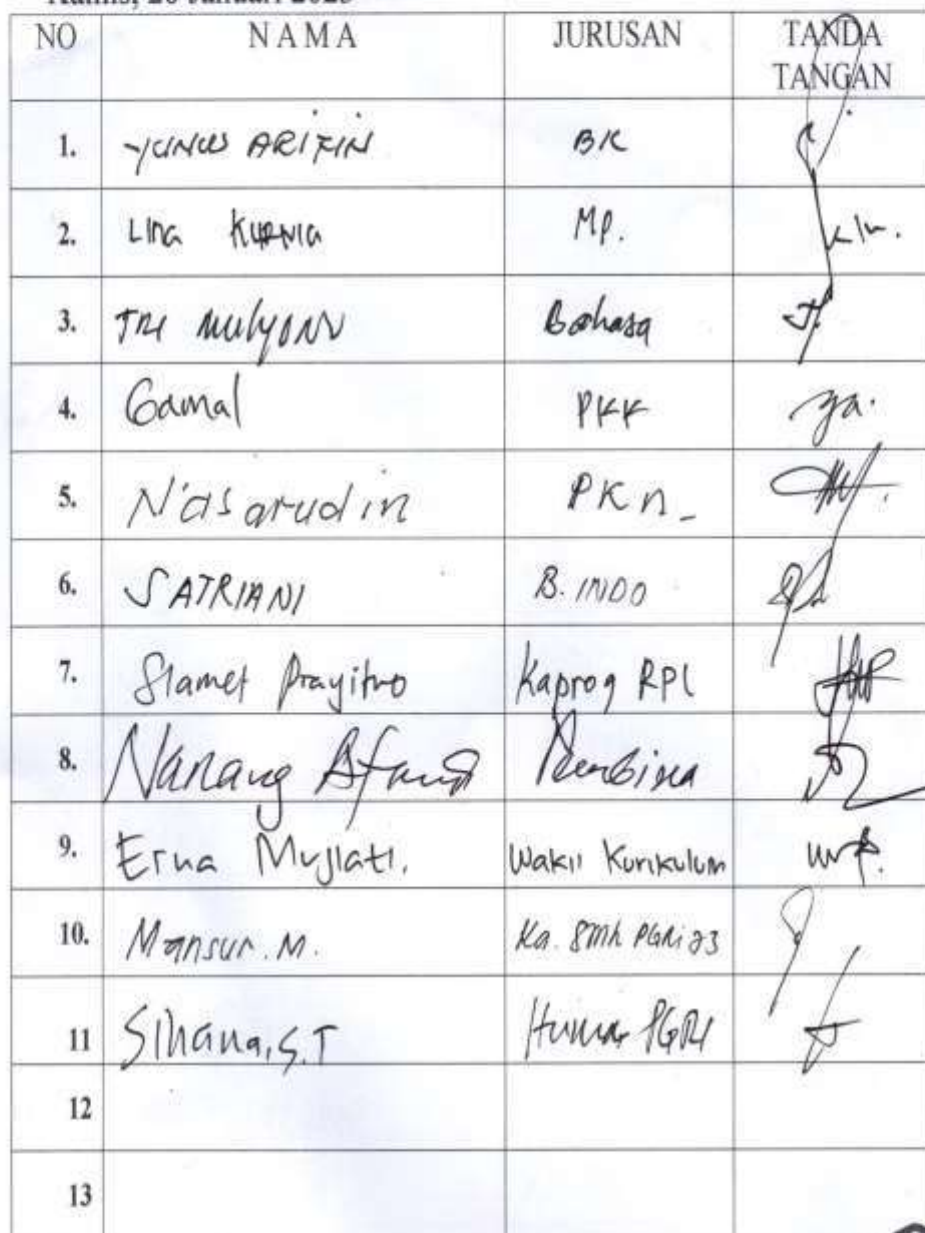 Januari 2023
NO NAMA JURUSAN TANDA TANGAN
1. YUNUS ARIFIN BK
2. Lina Kurnia MP.
3. Tri Mulyono Bahasa
4. Gamal PKK ga.
5. Nasarudin PKn
6. SATRIANI B. INDO
7. Slamet Prayitno Kaprog RPL
8. Nanang Pembina
9. Erna Mujiati. Wakil Kurikulum
10. Mansur. M. Ka. SMK PGRI 23
11 Sihana, S.T Humas PGRI
12
13